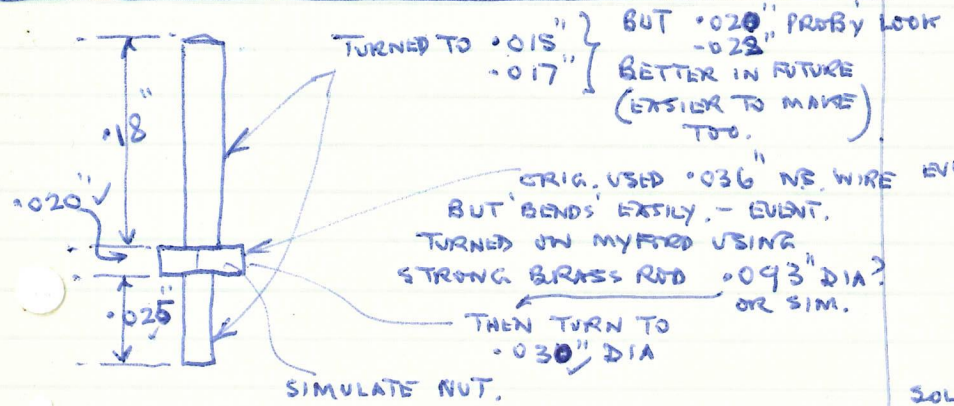 TURNED TO .015"
.017"
BUT .020" PROBY LOOK
-028"
BETTER IN FUTURE
(EASIER TO MAKE)
TOO.
.18"
.020"
ORIG. USED .036" N.S. WIRE
BUT 'BENDS' EASILY. - EVENT.
TURNED ON MYFORD USING
STRONG BRASS ROD .093" DIA?
OR SIM.
.025"
THEN TURN TO
.030" DIA
SIMULATE NUT.